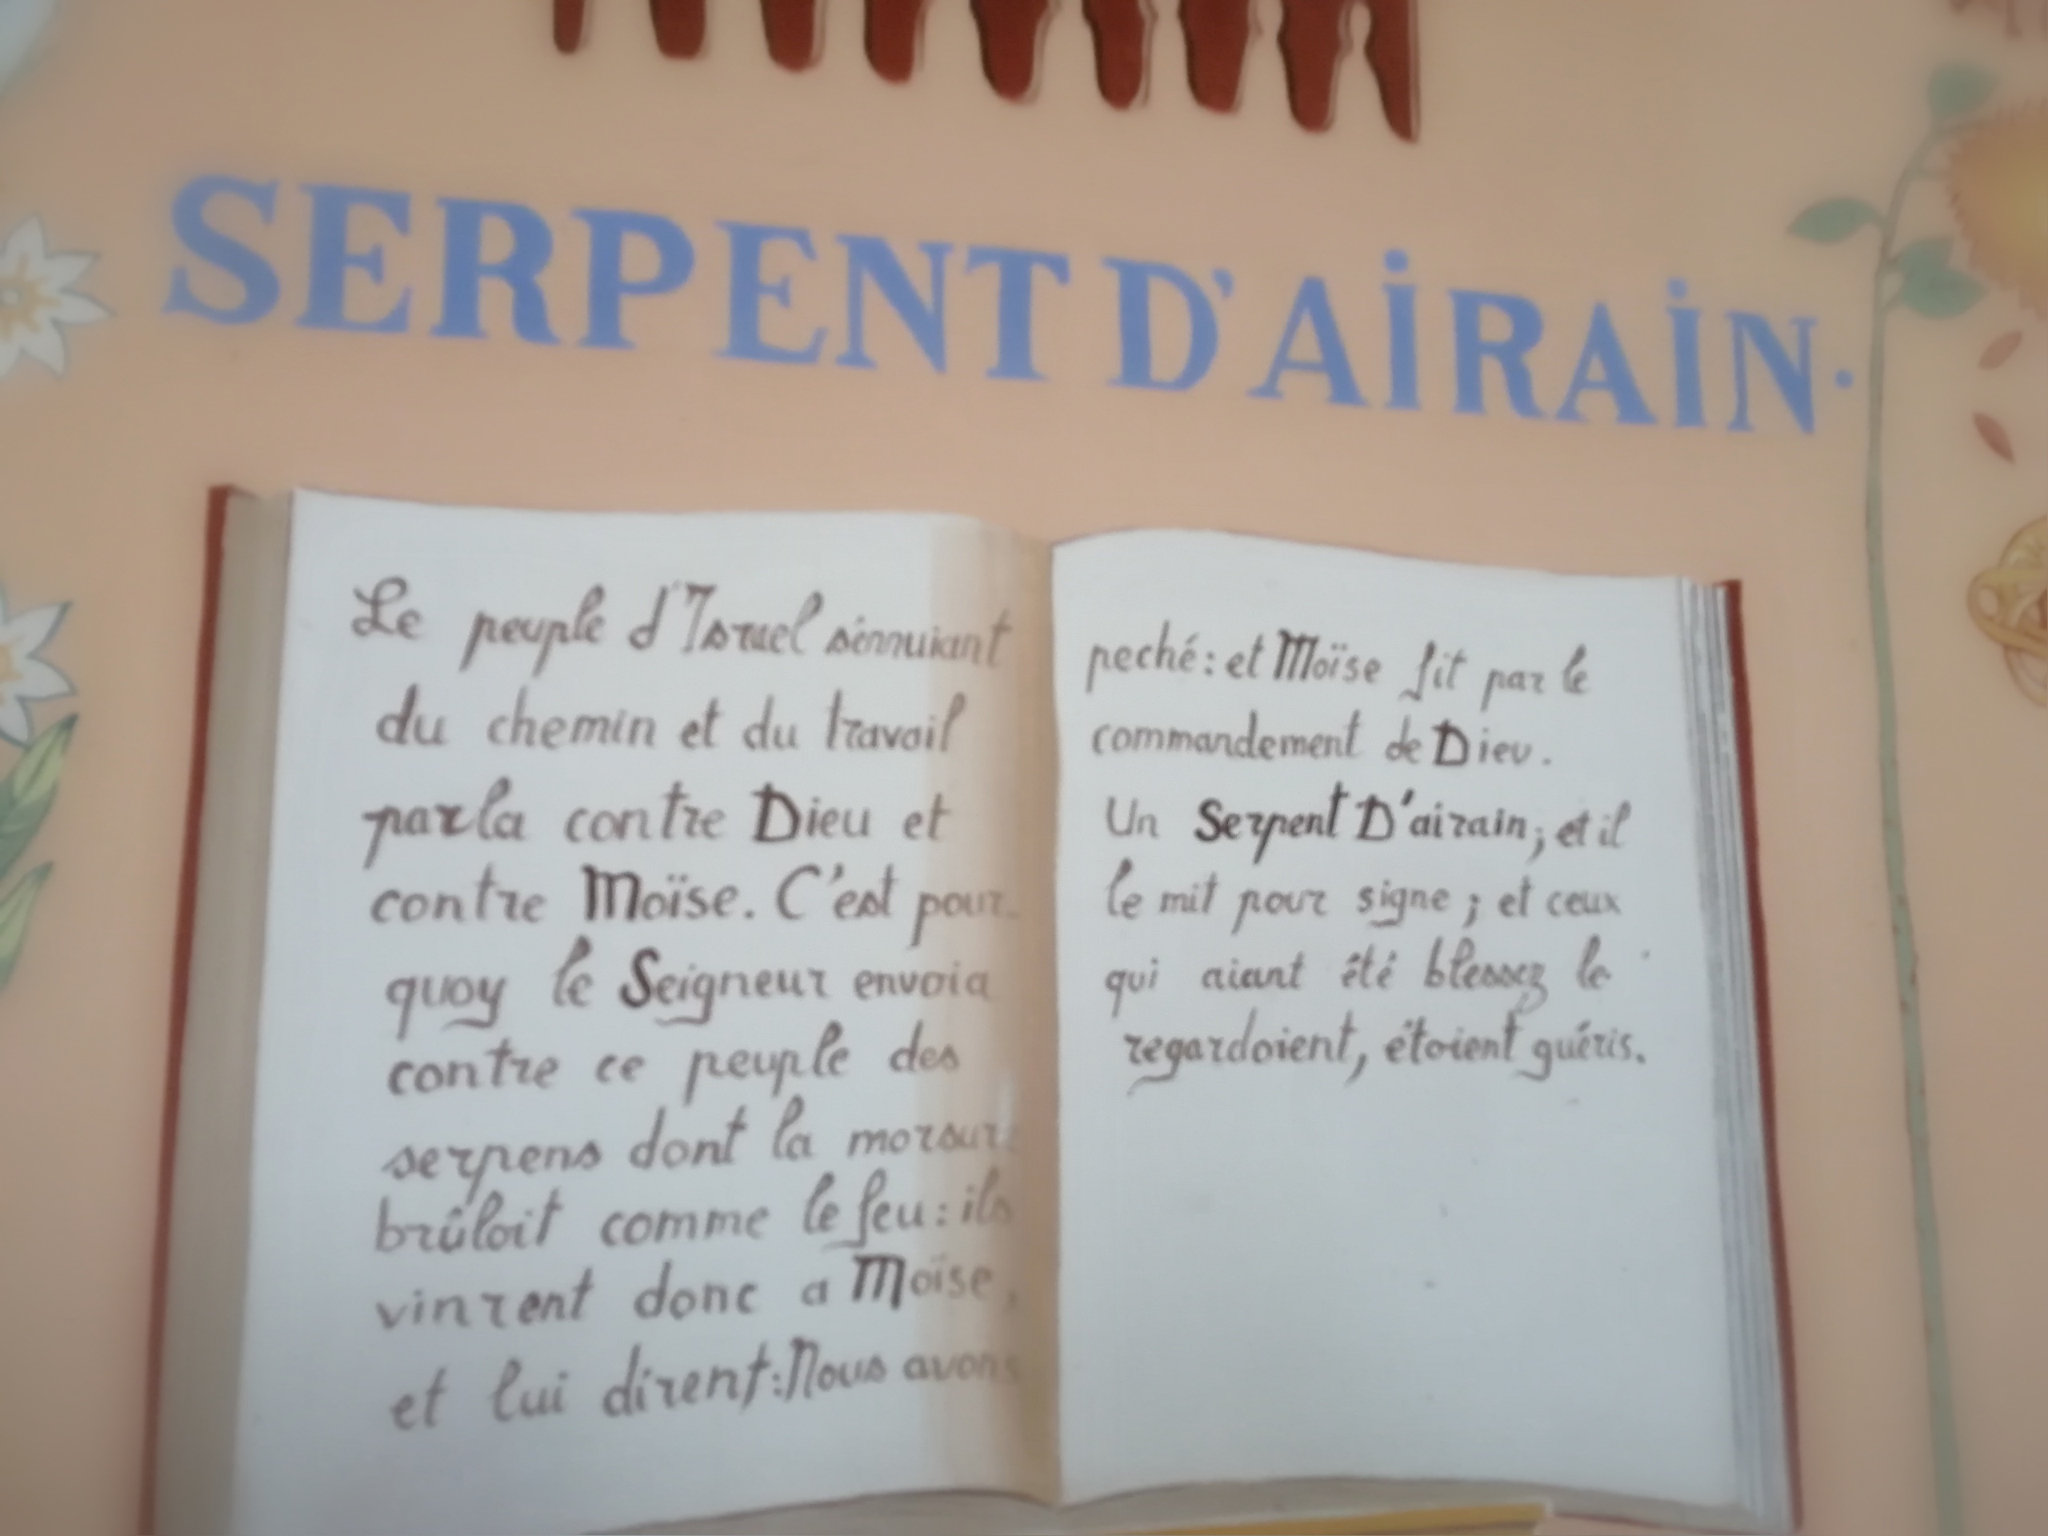 SERPENT D'AIRAIN.
Le peuple d'Israel s'énnuiant
du chemin et du travail
parla contre Dieu et
contre Moïse. C'est pour-
quoy le Seigneur envoia
contre ce peuple des
serpens dont la morsure
brûloit comme le feu: ils
vinrent donc a Moïse,
et lui dirent: Nous avons
peché: et Moïse fit par le
commandement de Dieu.
Un Serpent D'airain; et il
le mit pour signe; et ceux
qui aiant été blessez le
regardoient, étoient guéris.